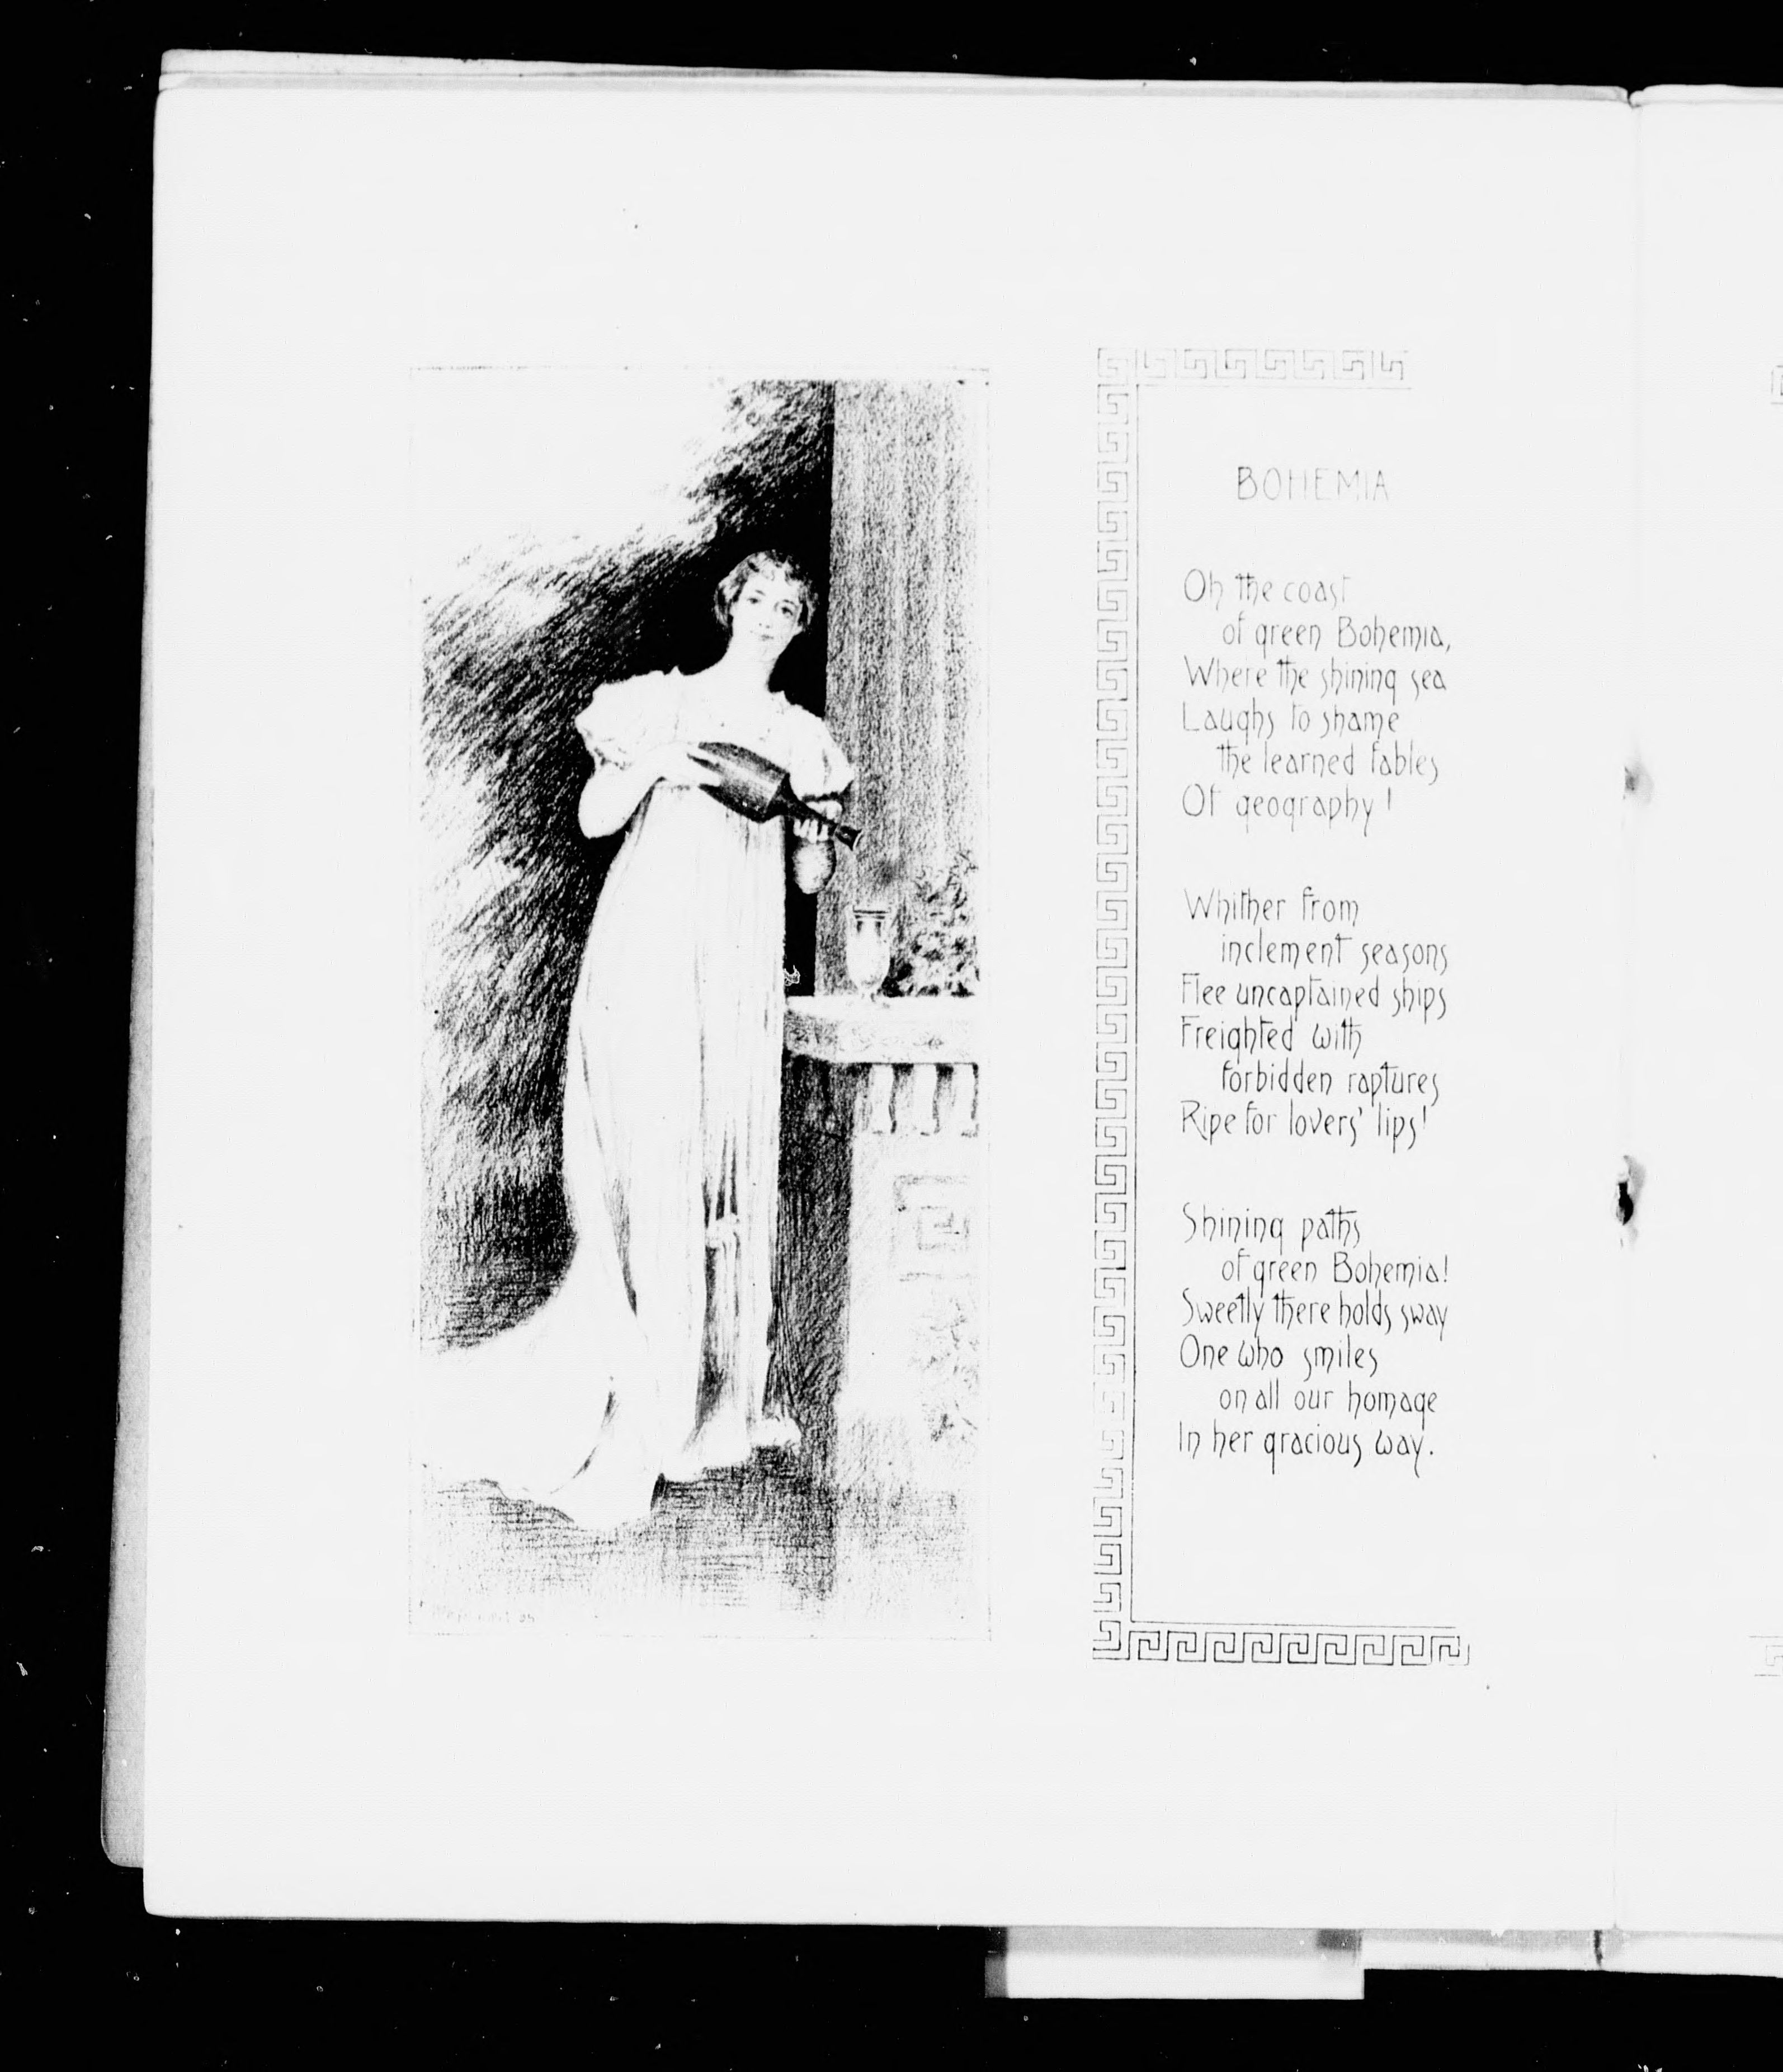 BOHEMIA
Oh the coast
of green Bohemia,
Where the shining sea
Laughs to shame
the learned fables
Of geography!
Whither from
inclement seasons
Flee uncaptained ships
Freighted with
forbidden raptures
Ripe for lovers' lips!
Shining paths
of green Bohemia!
Sweetly there holds sway
One who smiles
on all our homage
In her gracious way.